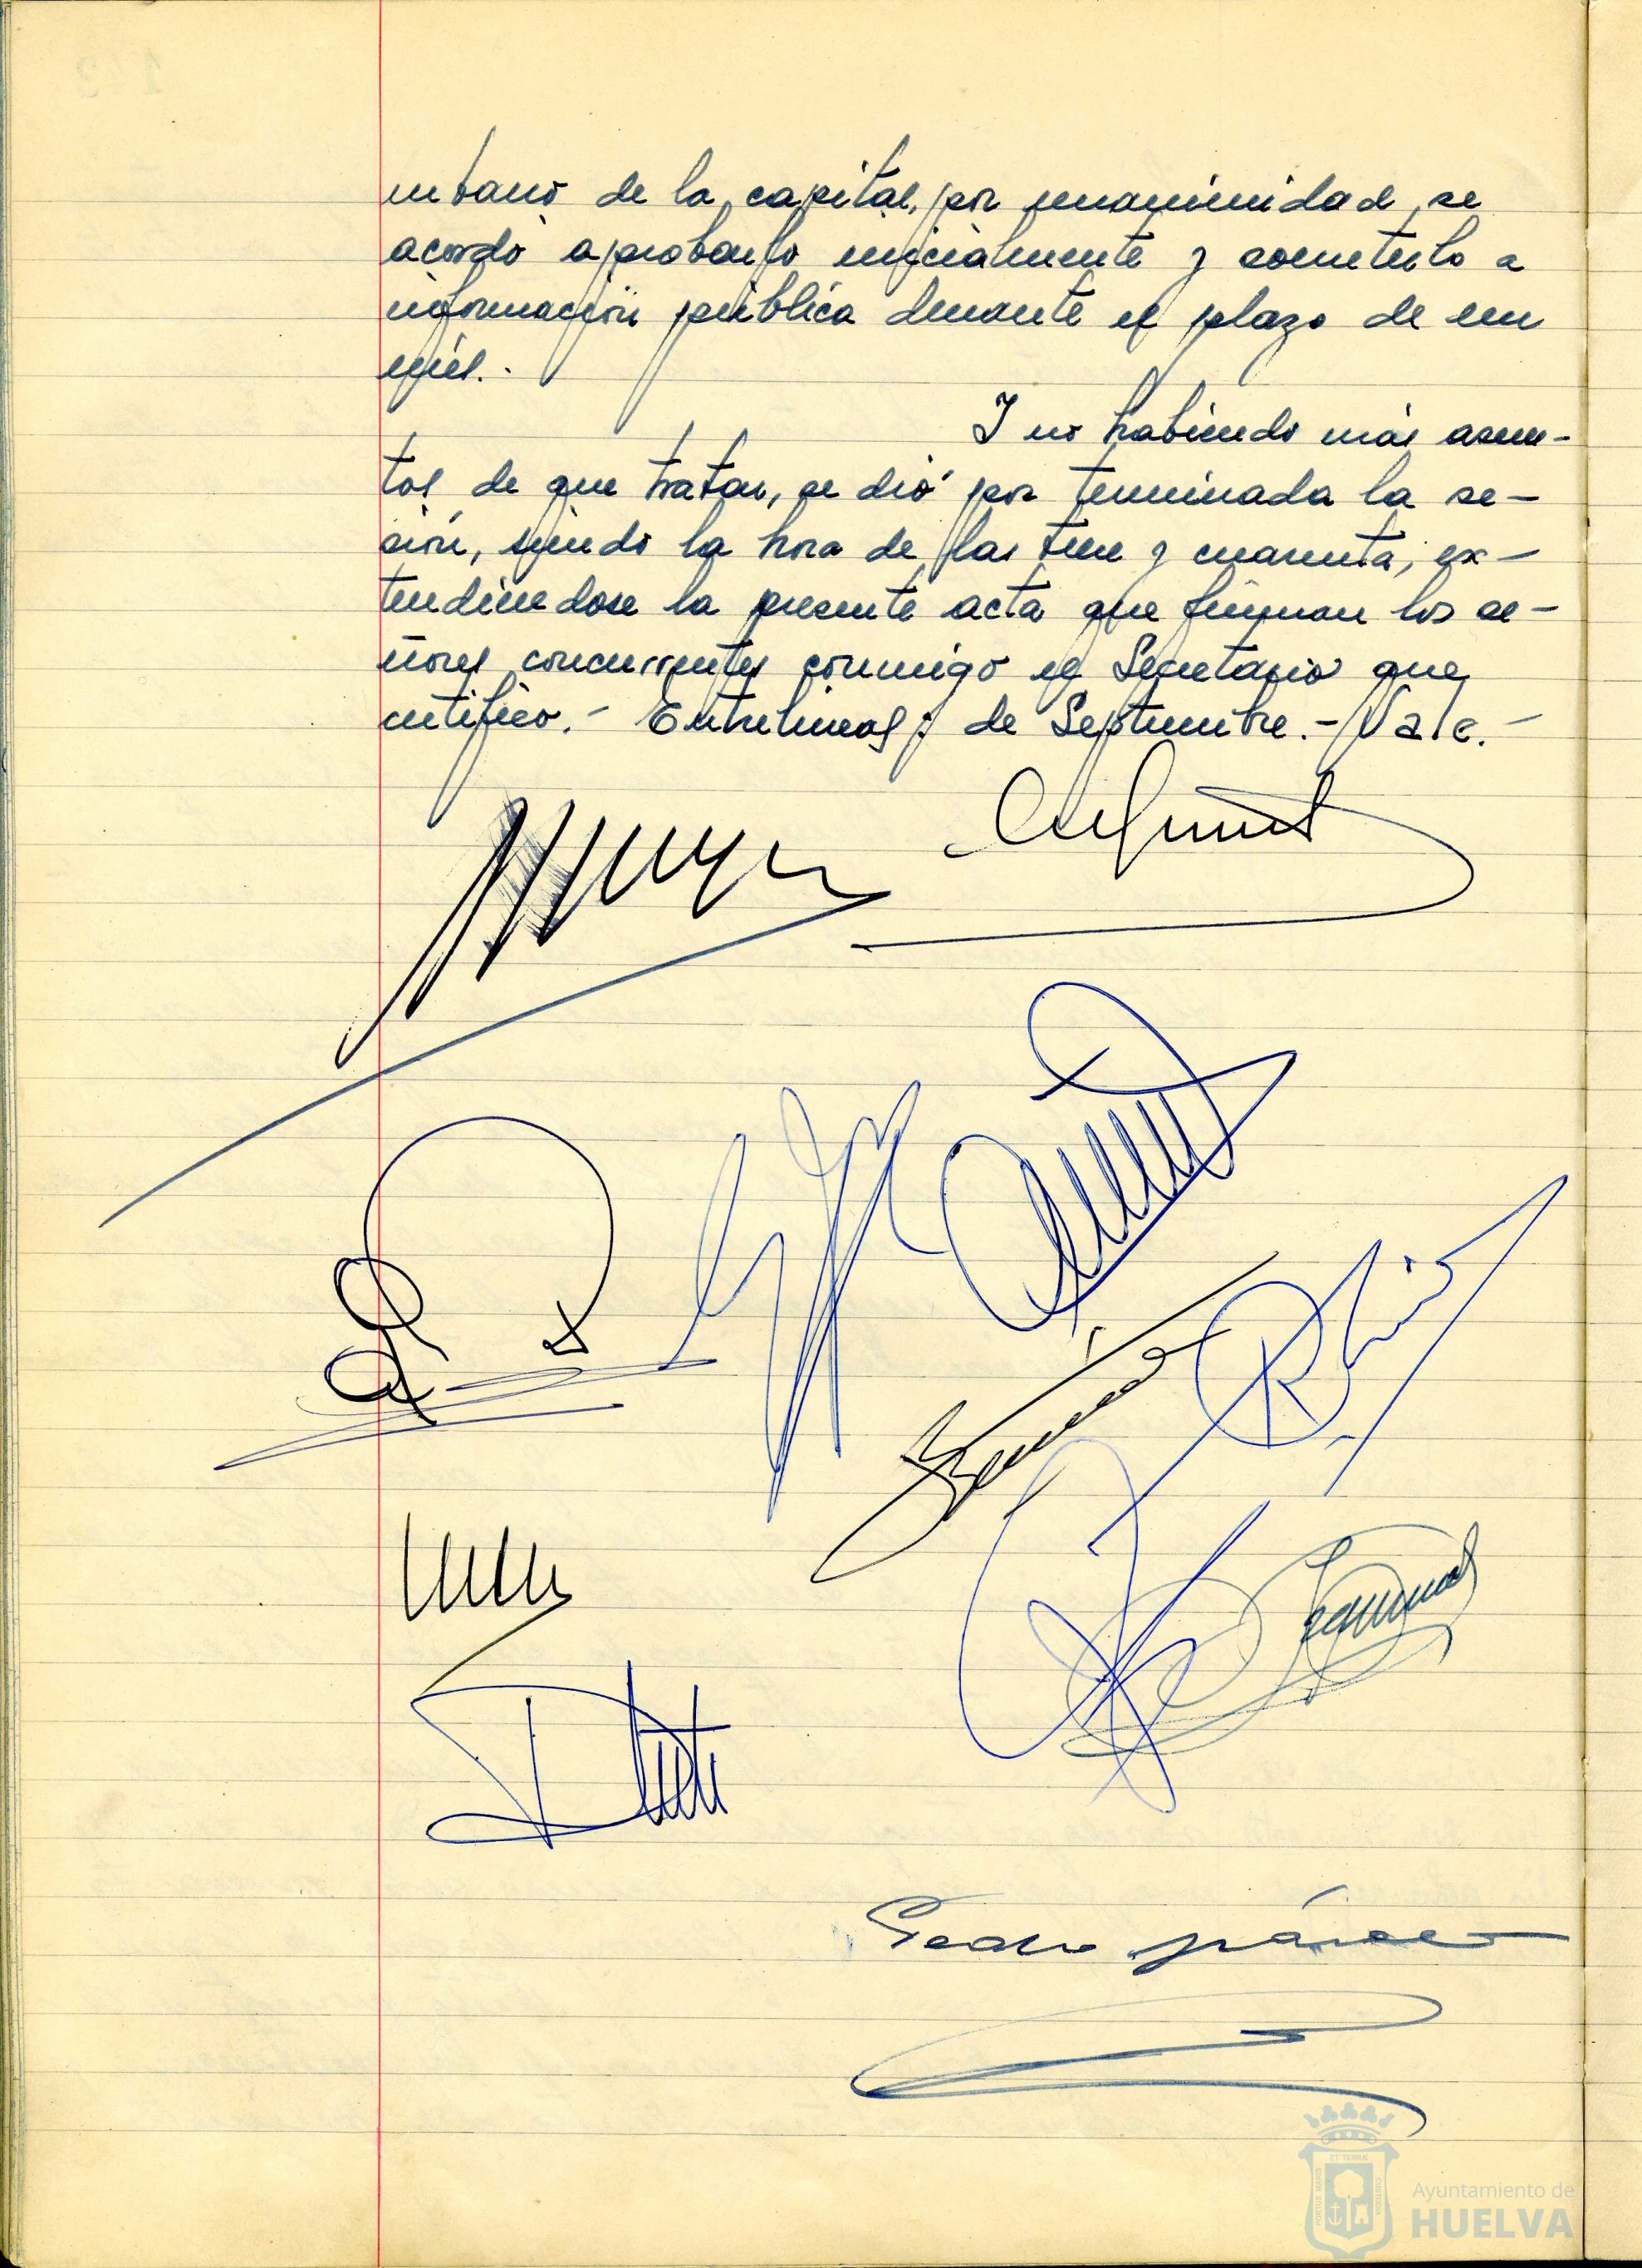 urbano de la capital, por unanimidad se
acordó aprobarlo inicialmente y someterlo a
información pública durante el plazo de un
mes.-
Y no habiendo más asun-
tos de que tratar, se dió por terminada la se-
sión, siendo la hora de las trece y cuarenta, ex-
tendiendose la presente acta que firman los se-
ñores concurrentes conmigo el Secretario que
certifico.- Entrelineas: de Septiembre.- Vale.-
Pedro
Ayuntamiento de
HUELVA